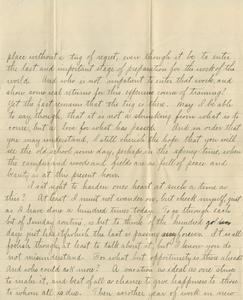 place without a tug of regret, even though it be to enter
the last and important stage of preparation for the work of this
world. And who is not impatient to enter that work, and
show some real returns for this expensive course of training?
Yet the fact remains that the tug is there. May I be able
to say though, that it is not a shrinking from what is to
come, but a love for what has passed. And in order that
you may understand, I still cherish the hope that you will
see the old school some day, perhaps in the spring time, when
the campus and woods and fields are as full of peace and
beauty as at this present hour.
Is it right to harden one's heart at such a time as
this? At least I must not wonder, but check myself, just
as I have done a hundred times today. For through each
bit of routine is but to think of the hundred
days just like it, which the last in passing
foolish though, at least to talk about it, but I know you do
not misunderstand. For what but opportunity is those ahead
And who could ask more? A vacation as ideal as one likes
to make it, and best of all a chance to give happiness to those
to whom all is due. Then another year of work in near